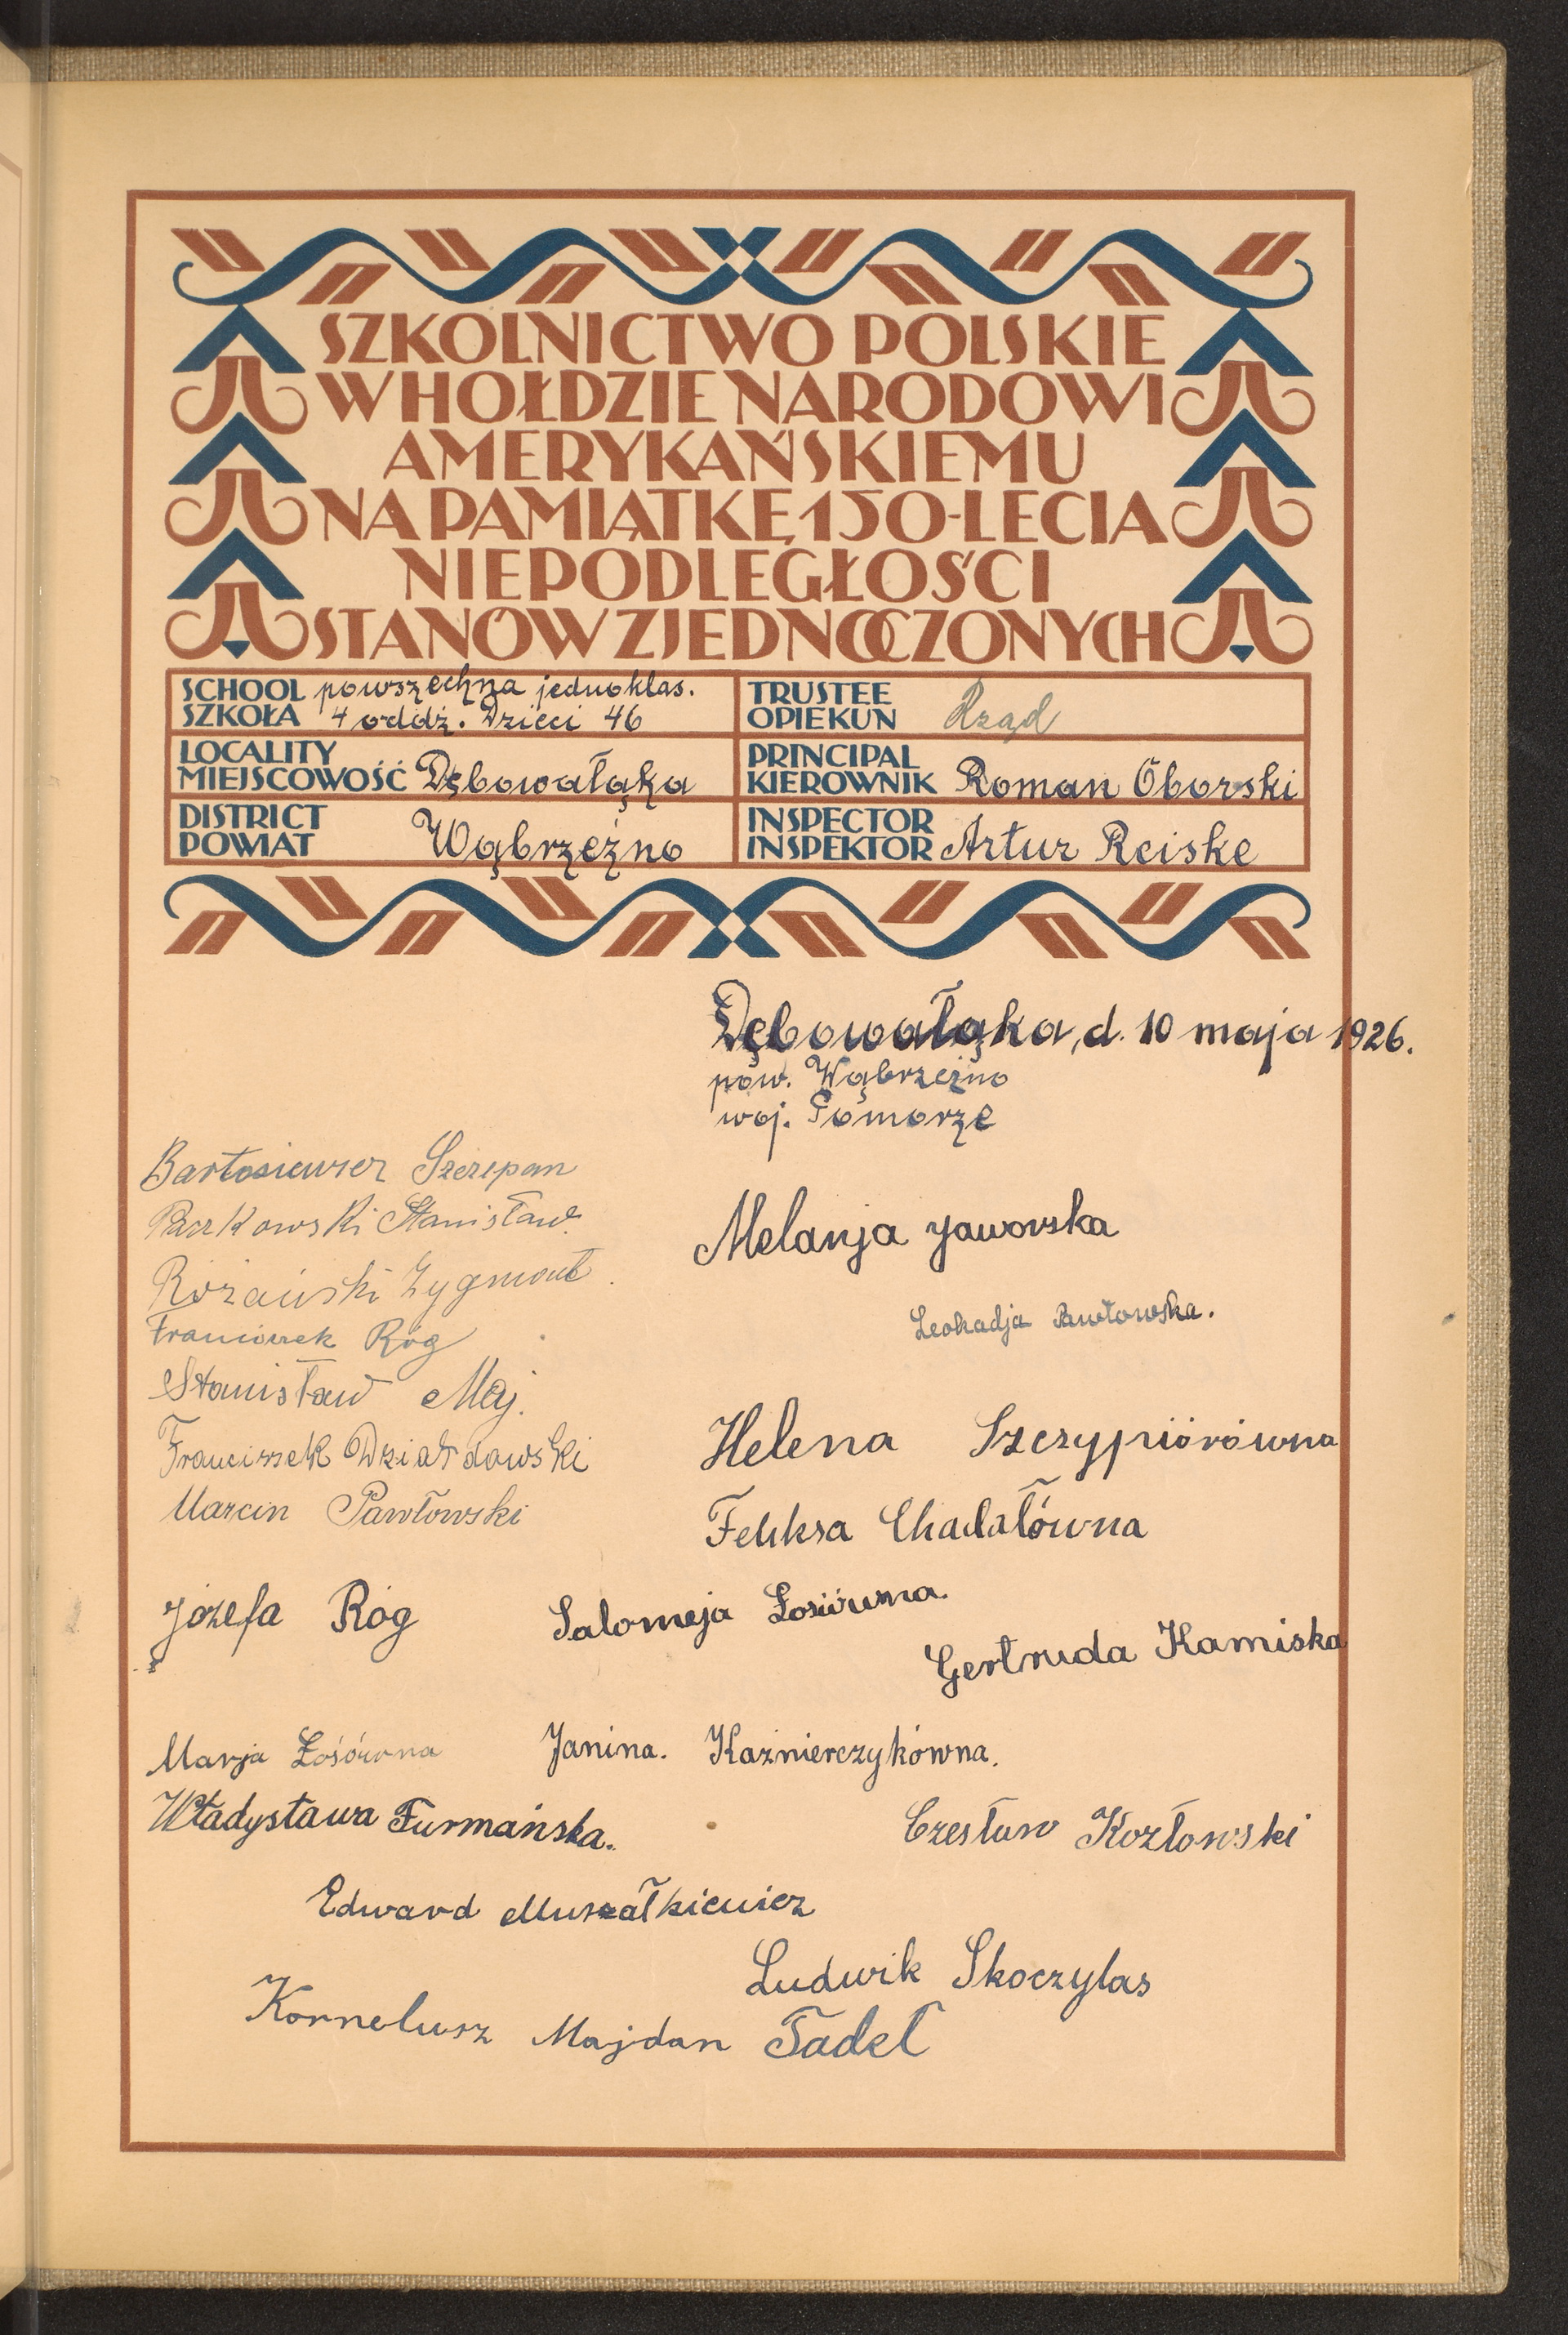 SZKOLNICTWO POLSKIE
W HOŁDZIE NARODOWI
AMERYKAŃSKIEMU
NA PAMIĄTKĘ 150-LECIA
NIEPODLEGŁOŚCI
STANÓW ZJEDNOCZONYCH
SCHOOL SZKOŁA powszechna jednoklas.
4 oddz. Dzieci 46
TRUSTEE
OPIEKUN Rząd
LOCALITY
MIEJSCOWOŚĆ Dębowałąka
PRINCIPAL
KIEROWNIK Roman Oborski
DISTRICT
POWIAT Wąbrzeźno
INSPECTOR
INSPEKTOR Artur Reiske
Dębowałąka, d. 10 maja 1926.
pow. Wąbrzeźno
woj. Pomorze
Bartosiewicz Szczepan
Paczkowski Stanisław
Melanja Jaworska
Różański Zygmont
Franciszek Róg
Leokadja Pawłowska.
Stanisław Maj.
Franciszek Działdowski
Helena Szczypiórówna
Marcin Pawłowski
Feliksa Chadałówna
Józefa Róg
Salomeja Łosiówna.
Gertruda Kamiska
Marja Łośówna
Janina. Kaźnierczykówna.
Władysława Furmańska.
Czesław Kozłowski
Edward Muszałkiewicz
Ludwik Skoczylas
Kornelusz Majdan Tadeł